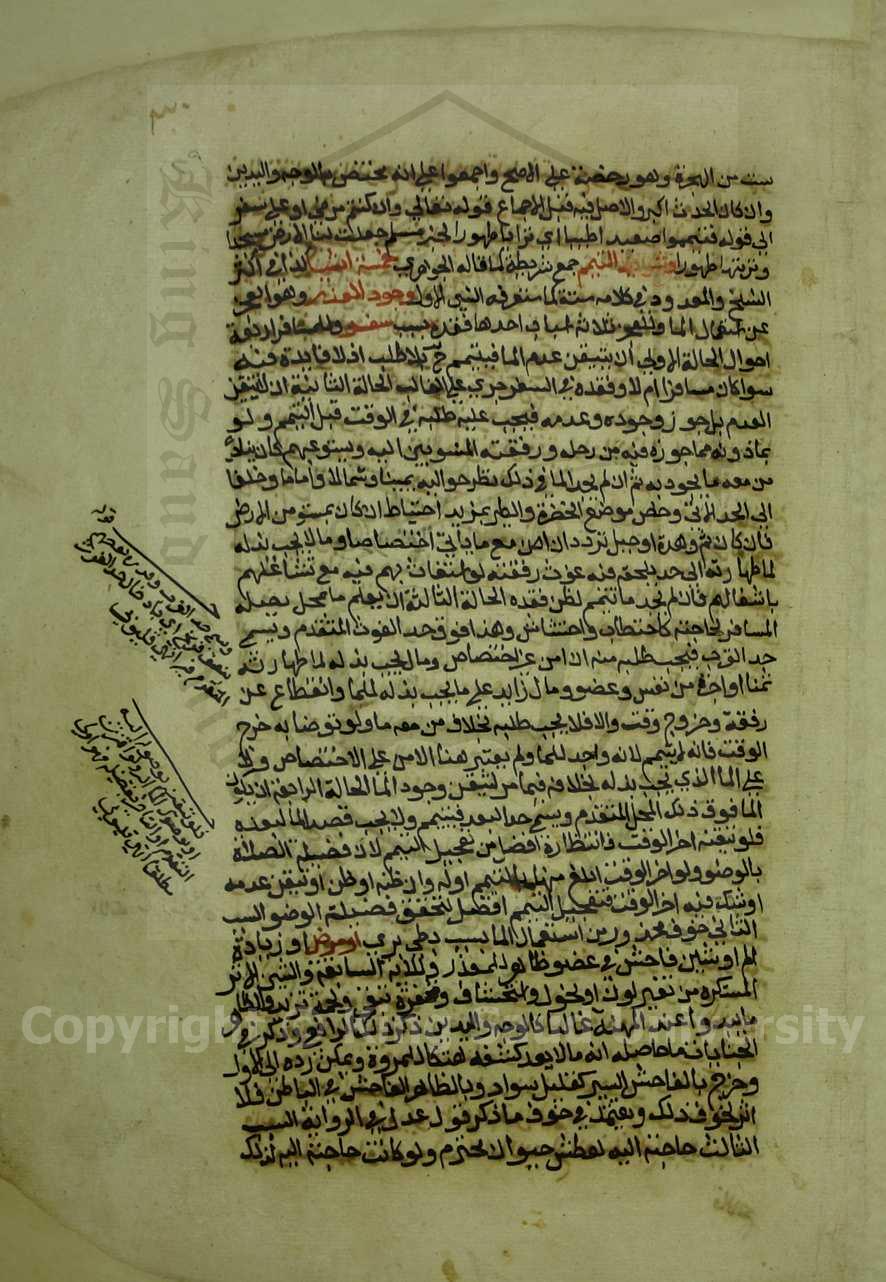 ست من الهجرة وهو رخصة على الاصح واجمعوا على انه مختص بالوجه واليدين
وان كان الحدث اكبر والاصل فيه قبل الاجماع قوله تعالى وان كنتم مرضى او على سفر
الى قوله فتيمموا صعيدا طيبا اي ترابا طهورا لخبر مسلم جعلت لنا الارض مسجدا
وتربتها طهورا وشرايط التيمم جمع شريطة كما قاله الجوهري خمسة اشيا كذا في اكثر
النسخ والمعدود في كلامه ستة كما ستعرفه الشي الاول وجود العذر وهو العجز
عن استعمال الما وللعجز ثلاثة اسباب احدها فقده بسبب سفر وللمسافر اربعة
احوال الحالة الاولى ان يتيقن عدم الما فيتيمم ح بلا طلب اذ لا فايدة فيه
سوا كان مسافرا ام لا وفقده في السفر جري على الغالب الحالة الثانية ان لا يتيقن
العدم بل جوز وجوده وعدمه فيجب عليه طلبه في الوقت قبل التيمم ولو
بماذونه مما جوزه فيه من رحله ورفقته المنسوبين اليه ويستوعبهم كان ينادي
من معه ما يجود به ثم ان لم يجد الما في ذلك نظر حواليه يمينا وشمالا واماما وخلفا
الى الحد الاتي وخص موضع الخضرة والطير بمزيد احتياط ان كان بمستو من الارض
فان كان ثم وهدة او جبل تردد ان امن مع ما ياتي اختصاصا وما لا يجب بذله
لما طهارته الى حد يلحقه فيه غوث رفقته لو استغاث بهم فيه مع تشاغلهم
باشغالهم فان لم يجد ما تيمم لظن فقده الحالة الثالثة ان يعلم ما بمحل يصله
المسافر لحاجته كاحتطاب واحتشاش وهذا فوق حد الغوث المتقدم ويسمى
حد القرب فيجب طلبه منه ان امن غير اختصاص ومال يجب بذله لما طهارته
ثمنا او اجرة من نفس وعضو ومال زايد على ما يجب بذله للما وانقطاع عن
رفقة وخروج وقت والا فلا يجب طلبه بخلاف من معه ما ولو توضا به خرج
الوقت فانه لا يتيمم لانه واجد للما ولم يعتبر هنا الامن على الاختصاص ولا
على الما الذي يجب بذله بخلافه فيما مر لتيقن وجود الما الحالة الرابعة ان يكون
الما فوق ذلك المحل المتقدم ويسمى حد البعد فيتيمم ولا يجب قصد الما لبعده
فلو تيقنه اخر الوقت فانتظاره افضل من تعجيل التيمم لان فضيلة الصلاة
بالوضو ولو اخر الوقت ابلغ منها بالتيمم اوله وان ظنه او ظن او تيقن عدمه
او شك فيه اخر الوقت فتعجيل التيمم افضل لتحقق فضيلته الوضو السبب
الثاني خوف محذور من استعمال الما بسبب بطى برى او مرض او زيادة
الم او شين فاحش في عضو ظاهر للعذر وللاية السابقة والشين الاثر
المستكره من تغير لون او نحول واستحشاف وثغرة تبقى ولحمة تزيد والظاهر
ما يبدو عند المهنة غالبا كالوجه واليدين ذكر ذلك الرافعي وذكر في
الجنايات ما حاصله انه ما لا يعد كشفه هتكا للمروة ويمكن رده الى الاول
وخرج بالفاحش اليسير كقليل سواد وبالظاهر الفاحش في الباطن فلا
اثر لخوف ذلك ويعتمد في خوف ما ذكر قول عدل في الرواية السبب
الثالث حاجته اليه لعطش حيوان محترم ولو كانت حاجته اليه لذلك